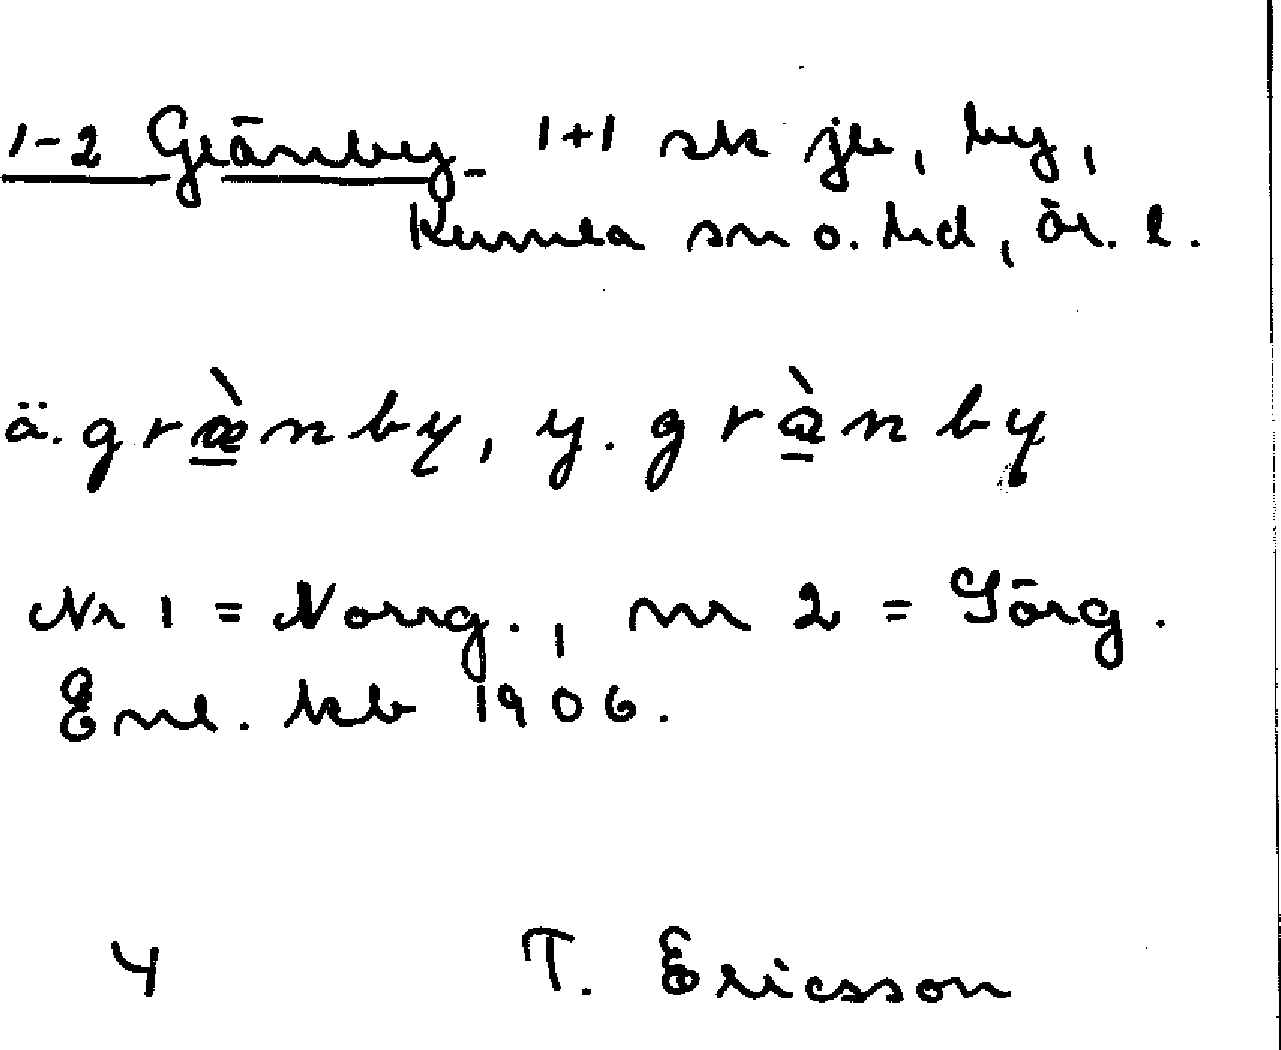 1-2 Gränby - 1+1 sk je, by,
Kumla sn o. hd, ör. l.
ä. græ̀nby, y. grànby
Nr 1 = Norrg., nr 2 = Sörg.
Enl. kb 1906.
4 T. Ericsson